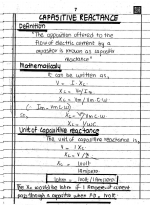 7
CAPASITIVE REACTANCE
Definition
"The opposition offered to the
flow of electric current by a
capasitor is known as capasitive
reactance"
Mathematically
It can be written as,
V = I Xc
Xc = Vm/Im
Xc = Vm/Vm C ω
(∵ Im = Vm C ω)
so,
Xc = 1/ωC
Unit of capasitive reactance
The unit of capasitive reactance is,
V = I Xc
Xc = V/I
Xc = 1volt
1Ampere
1ohm = 1volt/1Ampere
The Xc would be 1ohm if 1 Ampere of current
pass through a capasitor when P.D = 1volt.